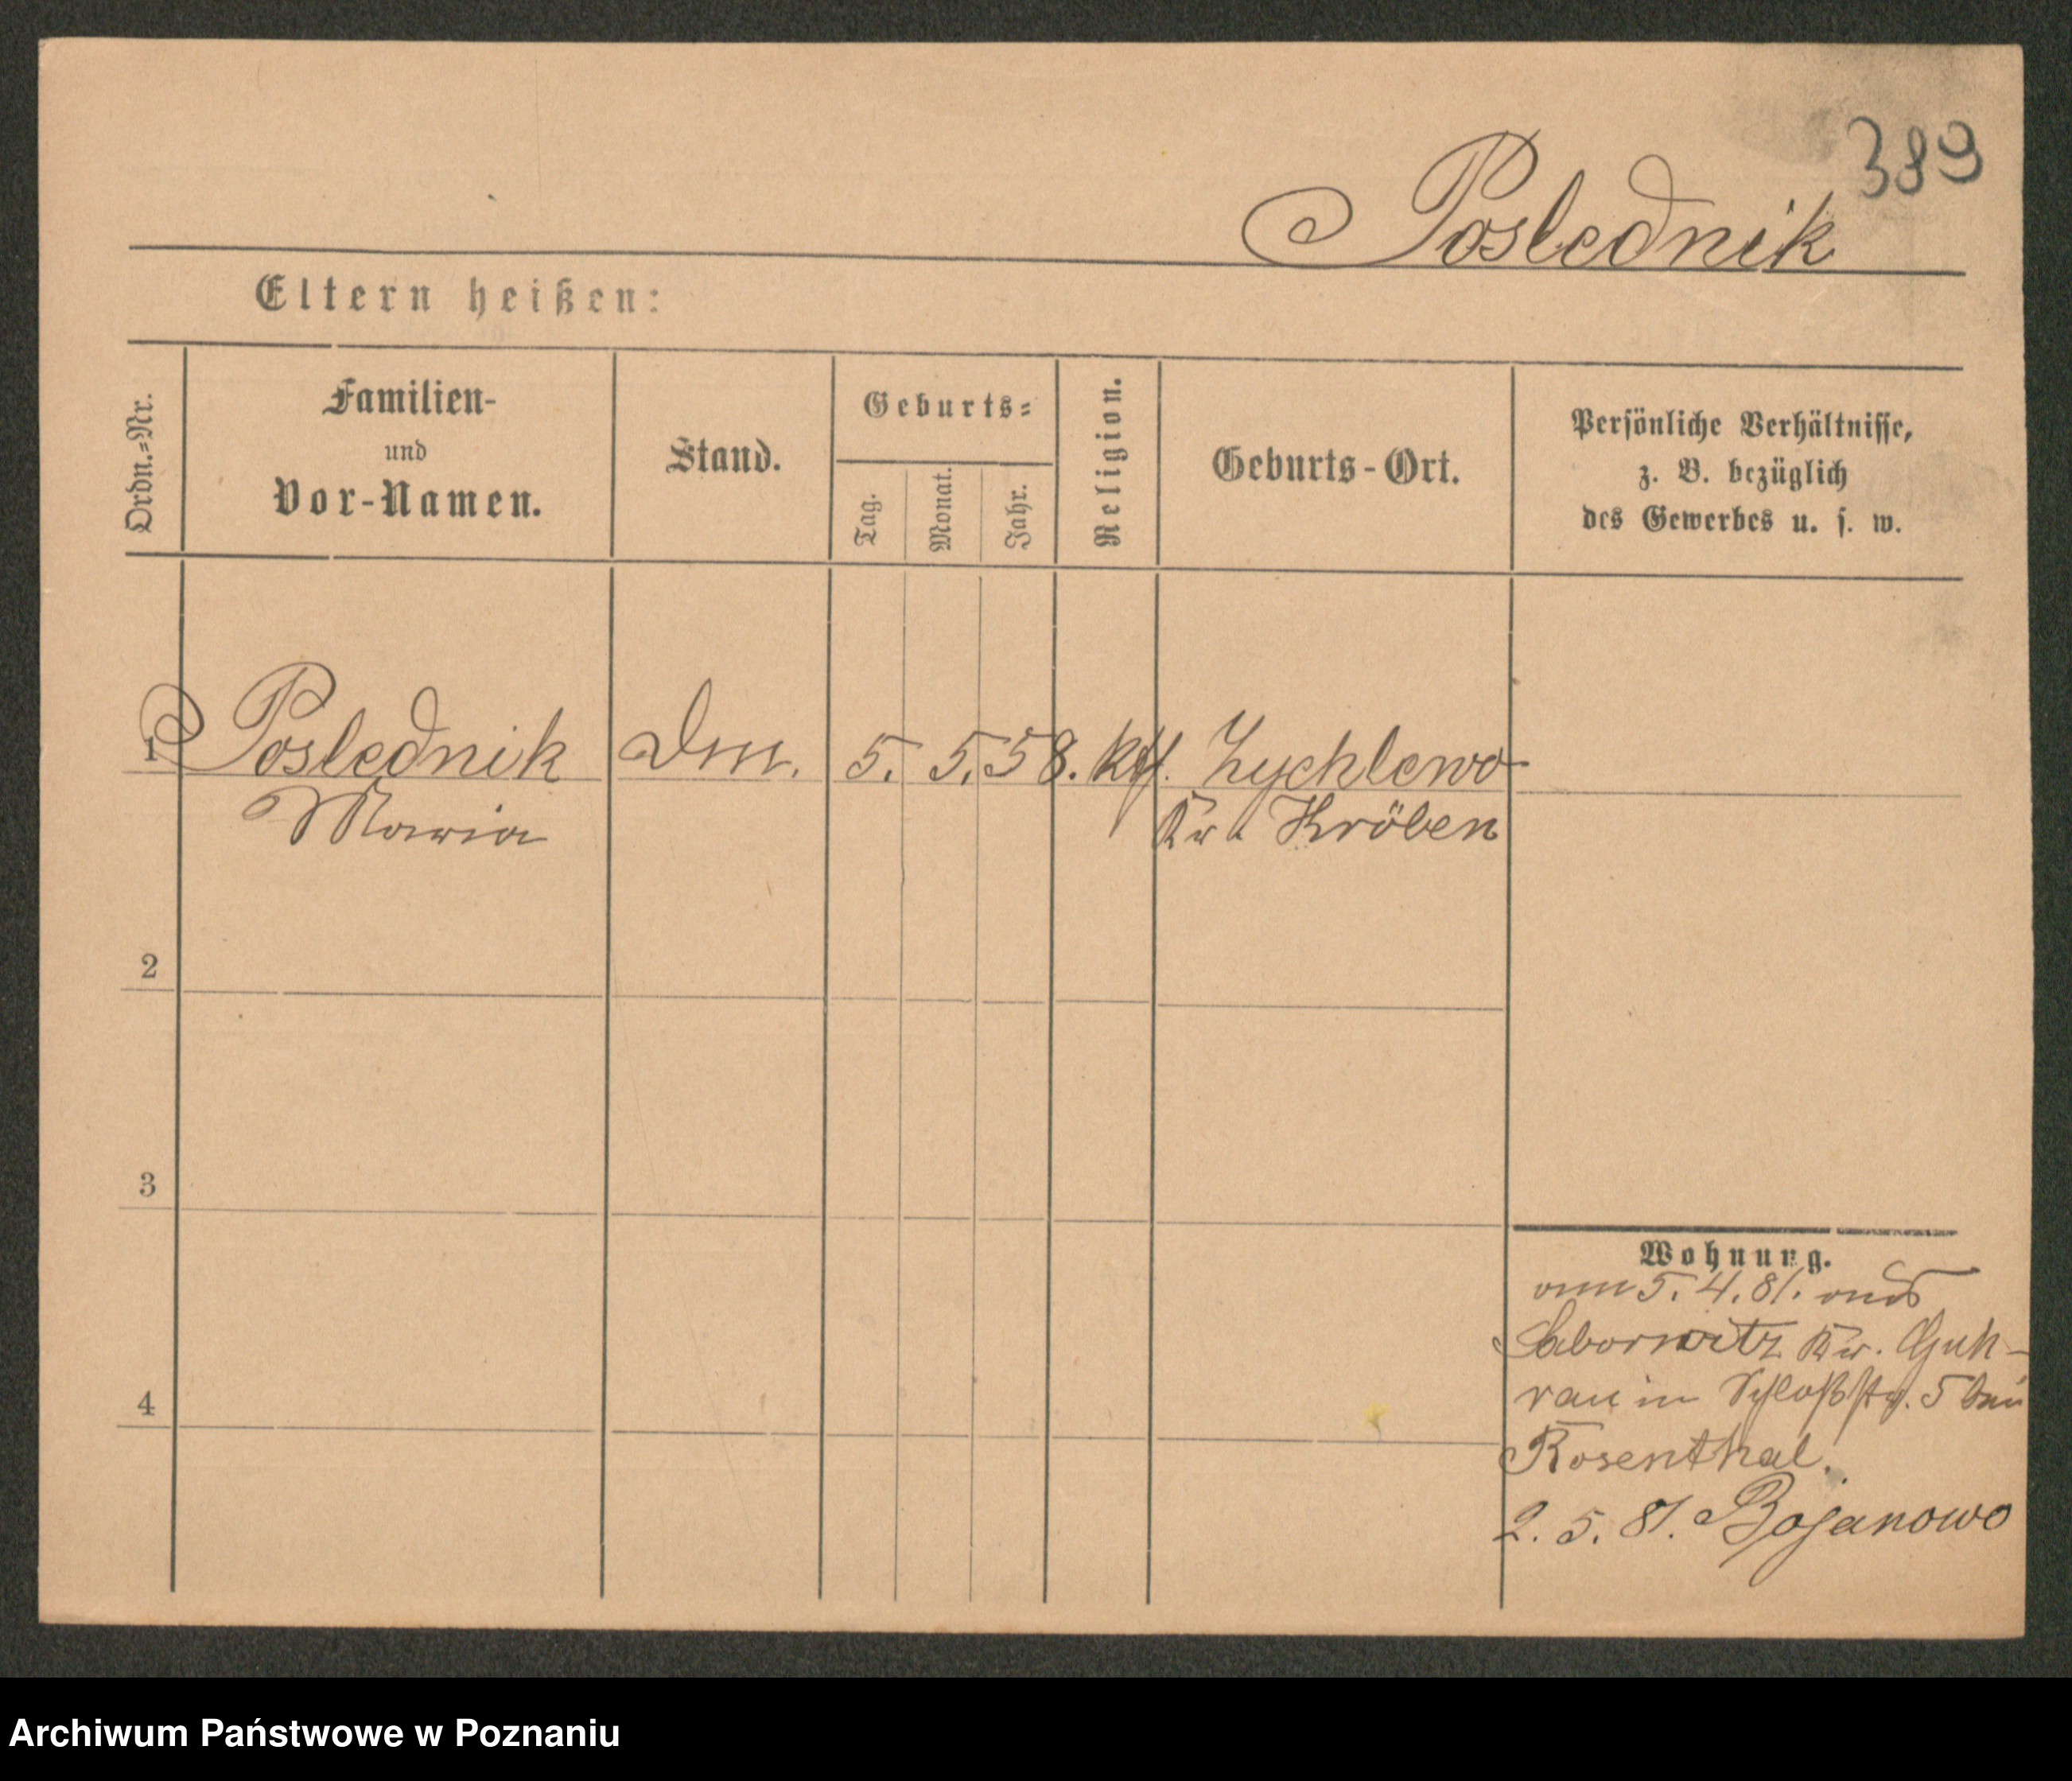 389
Poslednik
Eltern heißen:
Ordn.=Nr.
Familien-
und
Vor-Namen.
Stand.
Geburts=
Tag.
Monat.
Jahr.
Religion.
Geburts-Ort.
Persönliche Verhältnisse,
z. B. bezüglich
des Gewerbes u. s. w.
1 Poslednik Dm. 5. 5. 58. kth. Zychlewo
Maria Kr. Kröben
2
3
4
Wohnung.
am 5. 4. 81. aus
Saborwitz Kr. Guh-
rau in Schloßstr. 5 bei
Rosenthal.
2. 5. 81. Bojanowo
Archiwum Państwowe w Poznaniu